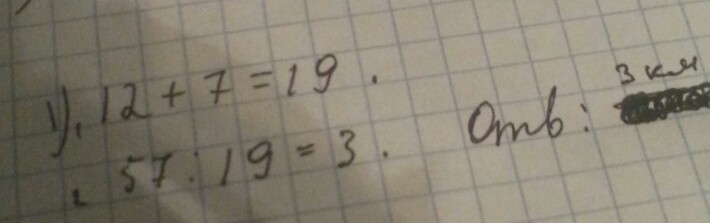 1). 12 + 7 = 19.
57 : 19 = 3. Отв: 3 км